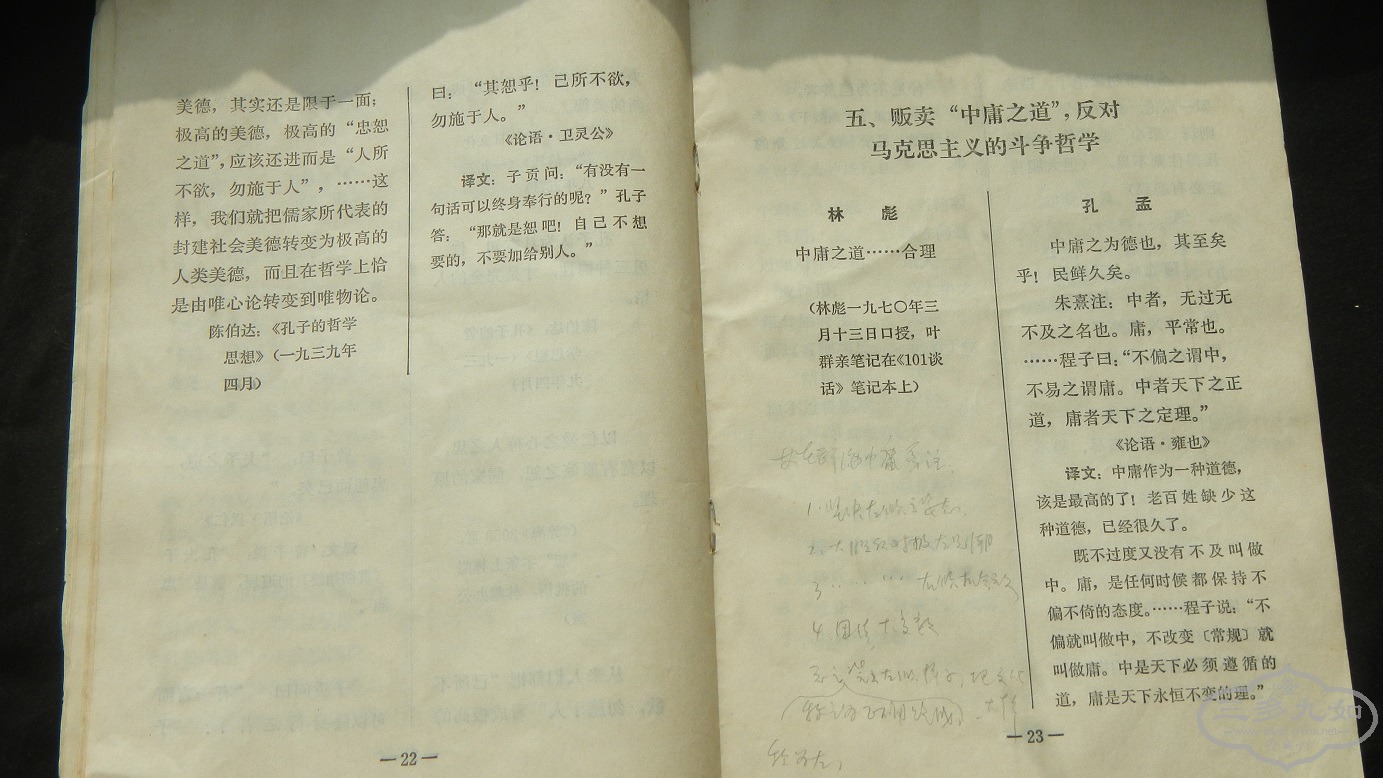 美德，其实还是限于一面；
极高的美德，极高的“忠恕
之道”，应该还进而是“人所
不欲，勿施于人”，……这
样，我们就把儒家所代表的
封建社会美德转变为极高的
人类美德，而且在哲学上恰
是由唯心论转变到唯物论。
陈伯达：《孔子的哲学
思想》（一九三九年
四月）
曰：“其恕乎！己所不欲，
勿施于人。”
《论语·卫灵公》
译文：子贡问：“有没有一
句话可以终身奉行的呢？”孔子
答：“那就是恕吧！自己不想
要的，不要加给别人。”
—22—
五、贩卖“中庸之道”，反对
马克思主义的斗争哲学
林彪
中庸之道……合理
（林彪一九七〇年三
月十三日口授，叶
群亲笔记在《101谈
话》笔记本上）
4 团结大多数
孔孟
中庸之为德也，其至矣
乎！民鲜久矣。
朱熹注：中者，无过无
不及之名也。庸，平常也。
……程子曰：“不偏之谓中，
不易之谓庸。中者天下之正
道，庸者天下之定理。”
《论语·雍也》
译文：中庸作为一种道德，
该是最高的了！老百姓缺少这
种道德，已经很久了。
既不过度又没有不及叫做
中。庸，是任何时候都保持不
偏不倚的态度。……程子说：“不
偏就叫做中，不改变〔常规〕就
叫做庸。中是天下必须遵循的
道，庸是天下永恒不变的理。”
—23—
三多九如